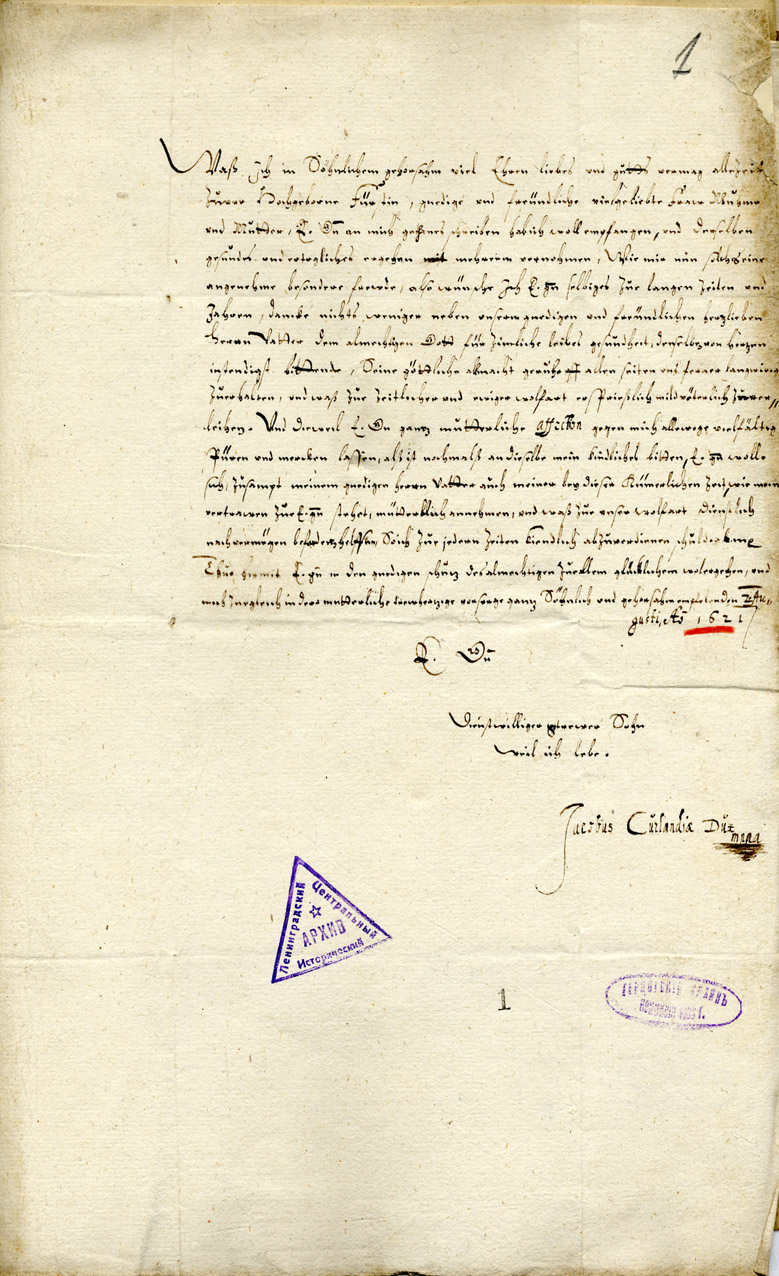 1
Waß Ich in Söhnlichem gehorsahm viel Ehren liebes und gutts vermag allezeit
Zuvor Hochgeborne Fürstin, gnedige und freündliche vielgeliebte Fraw Muhme
und Mutter, E. Gn an mich schreiben hab ich woll empfangen, und derselben
gesundes und ergehen mit mehrerm vernommen, Wie mir nun solches eine
angenehme besondere frewde, also wünsche Ich E. gn selbiges zue langen Zeiten und
Jahren, dancke nichts weniger neben unserm gnedigen und freündlichen herzlieben
herrn Vatter dem almechtigen Gott für Zimliche leibes gesundheit, denselben von herzen
instendigst bittende, Seine göttliche almacht geruhe allen seiten uns ferner langwirig
Zuerhalten, und waß Zue Zeitlicher und ewiger wolfart ersprießlich mildväterlich Zuver„
leihen. Und dieweil E. Gn ganz mutterliche affection gegen mich allewege vielfältig
spüren und mercken lassen, alß ist nochmalß an dieselbe mein kindliches bitten, E. gn wolle
sich, Zusampt meinem gnedigen herrn Vatter auch meiner bey dieser Kümerlichen Zeit, wie mein
vertrawen Zue E. gn stehet, mütterlich annehmen, und waß Zue unser wolfart dienstlich
nach vermögen befodern helffen, Solchs Zue jedern Zeiten kiendlich abzuverdienen schuldig
Thue hirmit E. gn in den gnedigen schutz des almechtigen Zue allem glücklichem wolergehen, und
mich Zugleich in dero mutterliche trewherzige vorsorge ganz Söhnlich und gehorsahm empfelenden Au„
gusti, Ao 1621
E. Gn
Dienstwilliger getrewer Sohn
weil ich lebe.
Jacobus Curlandiæ Dux
mpria
Ленинградский
Центральный
Исторический
АРХИВ
1